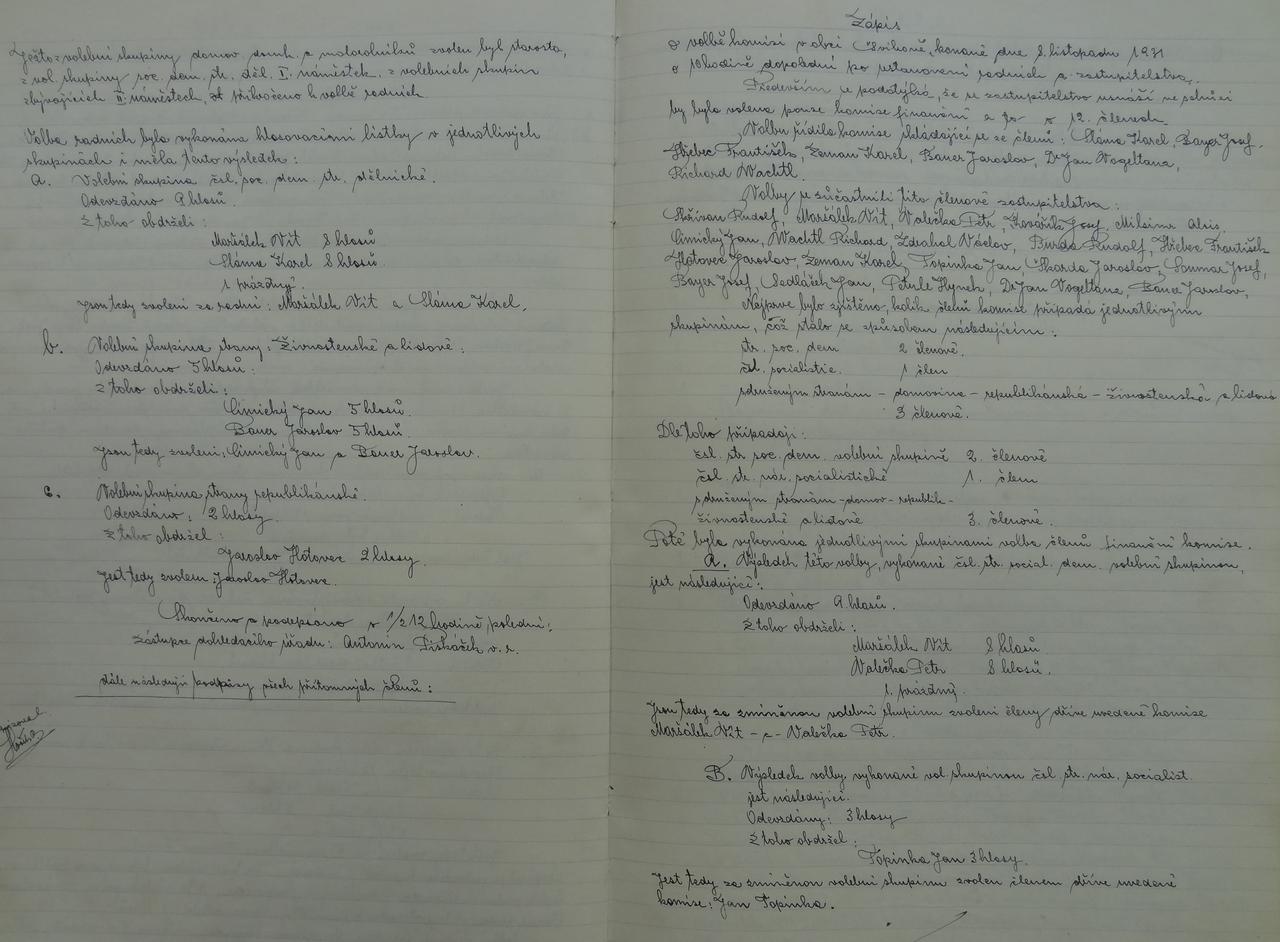 Ježto z volební skupiny domov. domk. a malorolníků zvolen byl starosta,
z vol. skupiny soc. dem. str. děl. I. náměstek, z volebních skupin
zbývajících II. náměstek, přikročeno k volbě radních.
Volba radních byla vykonána hlasovacími lístky v jednotlivých
skupinách i měla tento výsledek:
A. Volební skupina čsl. soc. dem. str. dělnické.
Odevzdáno 9 hlasů.
Z toho obdrželi:
Maršálek Vít 8 hlasů
Sláma Karel 8 hlasů
1 prázdný.
Jsou tedy zvoleni za radní: Maršálek Vít a Sláma Karel.
b. Volební skupina strany: Živnostenské a lidové:
Odevzdáno 5 hlasů:
Z toho obdrželi:
Cimický Jan 5 hlasů.
Bauer Jaroslav 5 hlasů.
Jsou tedy zvoleni: Cimický Jan a Bauer Jaroslav.
c. Volební skupina strany republikánské.
Odevzdáno: 2 hlasy.
Z toho obdržel:
Jaroslav Hotovec 2 hlasy.
Jest tedy zvolen Jaroslav Hotovec.
Skončeno a podepsáno v 1/2 12 hodině polední:
Zástupce dohledacího úřadu: Antonín Piskáček v. r.
dále následují podpisy všech přítomných členů:
Zápis
o volbě komisí v obci konané dne 8. listopadu 1931
o hodině dopolední po ustanovení radních a zastupitelstva.
Především se podotýká, že se zastupitelstvo usnáší ve schůzi
by byla volena pouze komise finanční a to o 12. členech.
Volbu řídila komise skládající se ze členů: Sláma Karel, Bayer Josef,
Hřebec František, Zeman Karel, Bauer Jaroslav, Dr Jan Vogeltanz,
Richard Wachtl.
Volby se súčastnili tito členové zastupitelstva:
Skřivan Rudolf, Maršálek Vít, Valečka Petr, Kovářík Josef, Alois,
Cimický Jan, Wachtl Richard, Zdeněk Václav, Burda Rudolf, Hřebec František
Hotovec Jaroslav, Zeman Karel, Topinka Jan, Škarda Jaroslav, Soumar Josef,
Bayer Josef, Sedláček Jan, Petule Hynek, Dr Jan Vogeltanz, Bauer Jaroslav,
Nejprve bylo zjištěno, kolik členů komise připadá jednotlivým
skupinám, což stalo se způsobem následujícím:
str. soc. dem 2 členové.
čsl. socialistic. 1 člen
sdruženým stranám – domovina – republikánská – živnostenská a lidová
3 členové.
Dle toho připadají:
čsl. str. soc. dem. volební skupině 2. členové
čsl. str. nár. socialistické 1. člen
sdruženým stranám – domov – republik –
živnostenské a lidové 3. členové.
Poté byla vykonána jednotlivými skupinami volba členů finanční komise.
A. Výsledek této volby, vykonané čsl. str. social. dem. volební skupinou,
jest následující:
Odevzdáno 9 hlasů.
Z toho obdrželi:
Maršálek Vít 8 hlasů
Valečka Petr 8 hlasů.
1. prázdný.
Jsou tedy za zmíněnou volební skupinu zvoleni členy dříve uvedené komise
Maršálek Vít – a – Valečka Petr.
B. Výsledek volby, vykonané vol. skupinou čsl. str. nár. socialist.
jest následující.
Odevzdány: 3 hlasy
Z toho obdržel:
Topinka Jan 3 hlasy.
Jest tedy za zmíněnou volební skupinu zvolen členem dříve uvedené
komise: Jan Topinka.